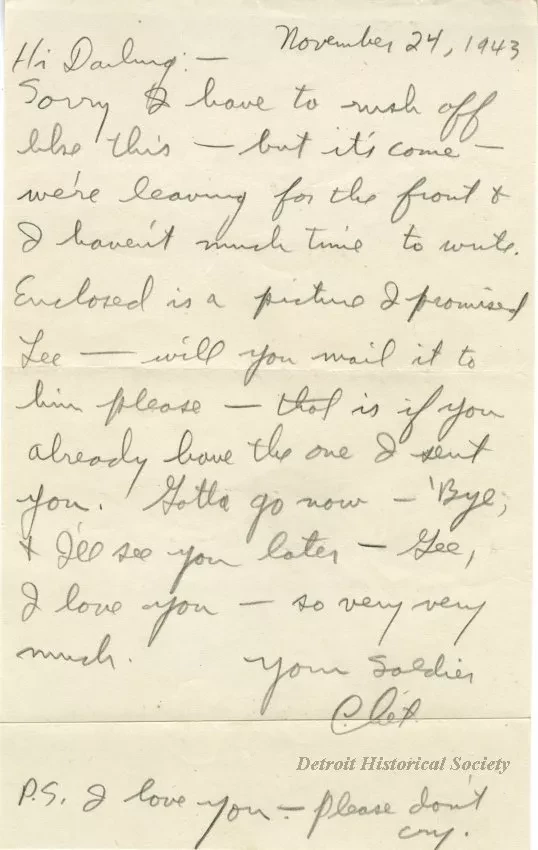 November 24, 1943
Hi Darling: —
Sorry I have to rush off
like this — but it's come —
we're leaving for the front &
I haven't much time to write.
Enclosed is a picture I promised
Lee — will you mail it to
him please — that is if you
already have the one I sent
you. Gotta go now — 'Bye,
& I'll see you later — Gee,
I love you — so very very
much.
Your Soldier
Chet.
Detroit Historical Society
P.S. I love you — please don't
cry.